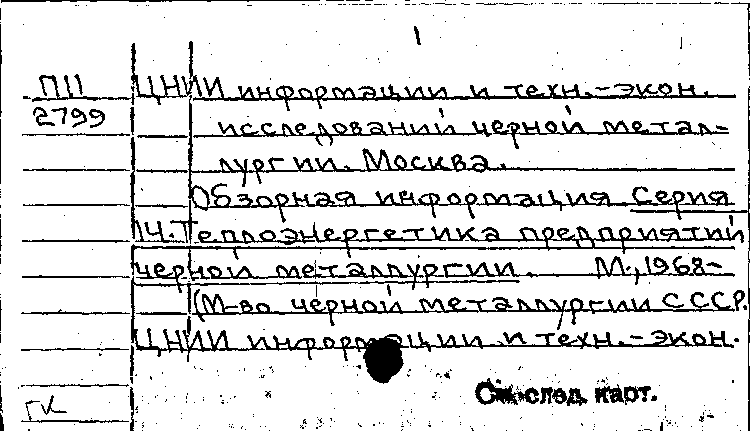 1
П11
2799
ЦНИИ информации и техн.-экон.
исследований черной метал-
лургии. Москва.
Обзорная информация Серия
14. Теплоэнергетика предприятий
черной металлургии. М., 1968-
(М-во черной металлургии СССР.
ЦНИИ информации и техн.-экон.
См. след. карт.
ГК